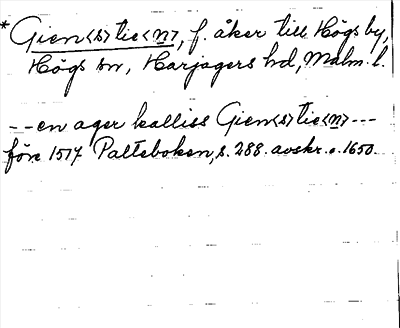 *Gien<s>tie<n>, f. åker till Högs by,
Högs sn, Harjagers hd, Malm. l.
--en ager kalliss Gien<s>tie<n>---
före 1517 Palteboken, s. 288. avskr. o. 1650.